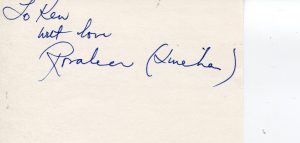 To Ken
with love
Rosaleen (Linehan)